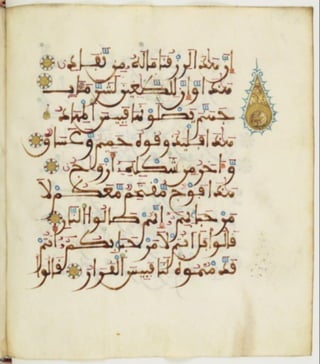 ان هذا لرزقنا ماله من نفاد
هذا وان للطغين لشر ماب
جهنم يصلونها فبيس المهاد
هذا فليذوقوه حميم وغساق
واخر من شكله ازواج
هذا فوج مقتحم معكم لا
مرحبا بهم انهم صالوا النار
قالوا بل انتم لا مرحبا بكم انتم
قدمتموه لنا فبيس القرار قالوا